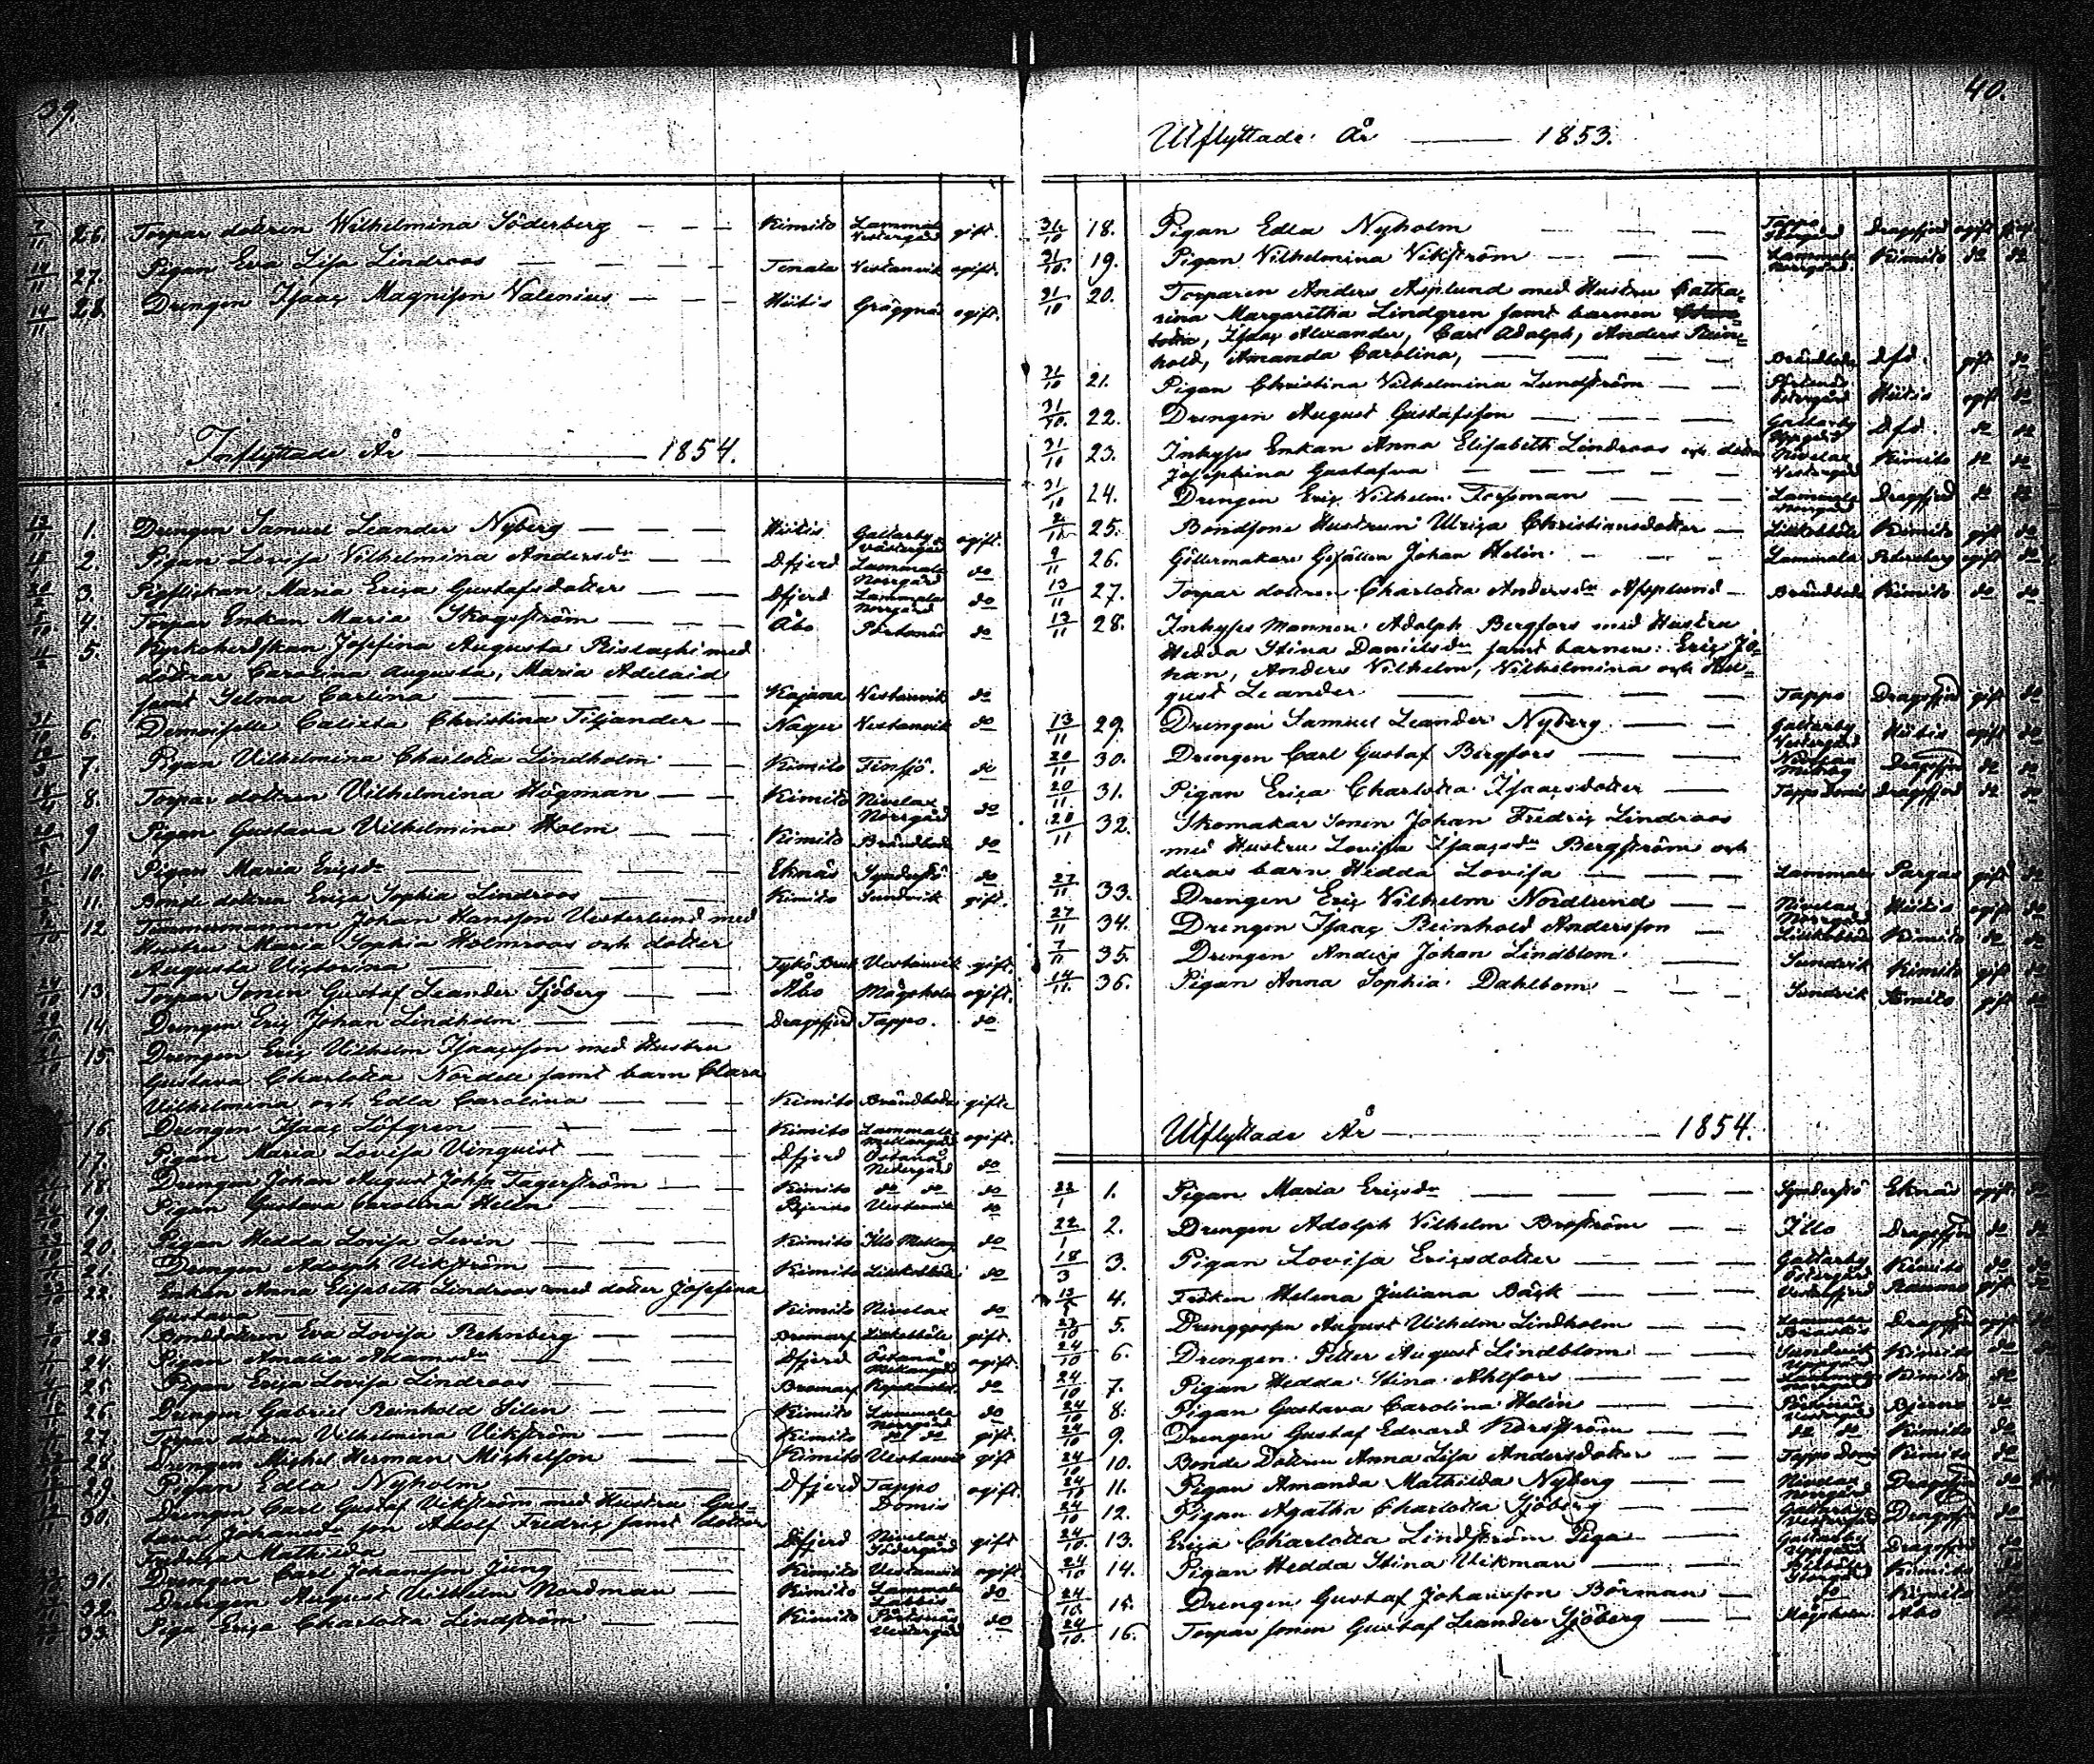 39.
7/11 26. Torpar dottren Wilhelmina Söderberg — — — Kimito Lammala Vestergård gift.
14/11 27. Pigan Eva Lisa Lindroos — — — Tenala Vestanvik ogift.
14/11 28. Drengen Isaac Magnison Valenius — — — Hitis Gräggnäs ogift.
Inflyttade År ——— 1854.
1. Drengen Samuel Leander Nyberg — — — Hitis Galtarby Västergård ogift.
2. Pigan Lovisa Vilhelmina Andersdr — — Dfjerd Lammala Norrgård do
3. Pigflickan Maria Erica Gustafsdotter — — Dfjerd Lammala Norrgård do
4. Torpar Enkan Maria Skogström — — — Åbo Pörtsnäs do
5. Kyrkoherdskan Josefina Augusta Ristachi med
döttrar Carolina Augusta, Maria Adelaid
samt Selma Carlina — — — Kajana Vestanvik do
6. Demoiselle Calixta Christina Tiljander — Vestanvik do
7. Pigan Vilhelmina Charlotta Lindholm — — Kimito do
8. Torpar dottren Vilhelmina Högman — — Kimito Nivelax Norrgård do
9. Pigan Gustava Vilhelmina Holm — — — Kimito Brändboda do
10. Pigan Maria Ericsdr — — — Eknäs Synderstö do
11. Bonde dottren Erica Sophia Lindroos — — Kimito Sundvik gift.
12. Timmermannen Johan Hansson Vesterlund med
Hustru Maria Sophia Holmroos och dotter
Augusta Victorina — — — Tykö Bruk Vestanvik gift.
13. Torpar Sonen Gustaf Leander Sjöberg — — Åbo Mågsholm ogift.
14. Drengen Eric Johan Lindholm — — — Dragsfjerd Tappo. do
15. Drengen Eric Vilhelm Isaacsson med Hustru
Gustava Charlotta Nordell samt barn Clara
Vilhelmina och Edla Carolina — — — Kimito Brändboda gifte
16. Drengen Isaac Löfgren — — — Kimito Lammala Mellangård ogift.
17. Pigan Maria Lovisa Vinquist — — — Dfjerd Östanå Nedergård do
18. Drengen Johan August Johss Fagerström — — Kimito do do do
19. Pigan Gustava Carolina Helén — — — Bjerno Vestanvik do
20. Pigan Hedda Lovisa Levin — — — Kimito Illo do
21. Drengen Adolph Vikström — — — Kimito Lillkobbla do
22. Enkan Anna Elisabeth Lindroos med dotter Josefina
Gustava — — — Kimito Nivelax do
23. Bondedottren Eva Lovisa Rehnberg — — Bromarf gift.
24. Pigan Amalia Adamsdr — — — Dfjerd Östanå Mellangård ogift.
25. Pigan Erica Lovisa Lindroos — — — Bromarf do
26. Drengen Gabriel Reinhold Silén — — — Kimito Lammala Norrgård do
27. Torpar dottren Vilhelmina Vikström — — Kimito do do gift.
28. Drengen Michel Herman Michelsson — — Kimito Vestanvik gift
29. Pigan Edla Nyholm — — — Dfjerd Tappo Domis ogift.
30. Drengen Carl Gustaf Vikström med Hustru Gus-
tava Johansdr son Adolf Fredric samt dotter
Fredrica Mathilda — — — Dfjerd Nivelax Södergård gift
31. Drengen Carl Johansson Ljung — — — Kimito Vestanvik ogift
32. Drengen August Vilhelm Nordman — — Kimito Lammala do
33. Piga Erica Charlotta Lindström — — — Kimito Pörtsnäs Vestergård do
40.
Utflyttade År ——— 1853.
31/10 18. Pigan Edla Nyholm — — — Tappo Dragsfjerd ogift
31/10. 19. Pigan Vilhelmina Vikström — — — Lammala Norrgård Kimito do do
31/10 20. Torparen Anders Asplund med Hustru Catha-
rina Margaretha Lindgren samt barnen
Isaac Alexander, Carl Adolph, Anders Rein-
hold, Amanda Carolina, — — — Brändboda Dfd. gift do
31/10 21. Pigan Christina Vilhelmina Lundström — — Östergård Hitis ogift do
31/10. 22. Drengen August Gustafsson — — — Galtarby Dfd. do do
31/10 23. Inhyses Enkan Anna Elisabeth Lindroos och dotter
Josephina Gustafva — — — Nivelax Vestergård Kimito do do
31/10 24. Drengen Eric Vilhelm Forsman — — — Lammala Norrgård Dragsfjerd do do
25. Bondesone Hustrun Ulrica Christiansdotter — Kimito gift do
9/11 26. Göllermakare Gesällen Johan Helin — — — Lammala Petersburg ogift do
13/11 27. Torpar dottren Charlotta Andersdr Aspplund — Brändboda Kimito do do
13/11 28. Inhyses Mannen Adolph Bergfors med Hustru
Hedda Stina Danielsdr samt barnen: Eric Jo-
han, Anders Vilhelm, Vilhelmina och Au-
gust Leander — — — Tappo Dragsfjerd gift do
13/11 29. Drengen Samuel Leander Nyberg — — Galtarby Vestergård Hitis ogift do
20/11 30. Drengen Carl Gustaf Bergfors — — Nivelax Dragsfjerd do do
20/11. 31. Pigan Erica Charlotta Isaacsdotter — Tappo Domis Dragsfjerd do do
20/11 32. Skomakar Sonen Johan Fredric Lindroos
med Hustru Lovisa Isaacsdr Bergström och
deras barn Hedda Lovisa — — — Lammala Pargas gift do
27/11 33. Drengen Eric Vilhelm Nordlund — — Nivelax Norrgård Hitis ogift do
27/11 34. Drengen Isaac Reinhold Andersson — Kimito do do
7/11 35. Drengen Anders Johan Lindblom — Sundvik Kimito gift do
14/11. 36. Pigan Anna Sophia Dahlbom — — — Sundvik Kimito gift do
Utflyttade År ——— 1854.
22/1 1. Pigan Maria Ericsdr — — — Synderstö Eknäs ogift do
22/1 2. Drengen Adolph Vilhelm Broström — — Illo Dragsfjerd do do
18/3 3. Pigan Lovisa Ericsdotter — — Galtarby Östergård Kimito do do
4. Fröken Helena Juliana Bäck — — Raumo gift do
5. Drenggossen August Vilhelm Lindholm — — Lammala Dragsfjerd ogift
24/10 6. Drengen Petter August Lindblom — — Sundvik Kimito do
24/10 7. Pigan Hedda Stina Ahlfors — — Kimito do
24/10 8. Pigan Gustava Carolina Helén — — Pörtsnäs Vestergård Bjerno do
24/10 9. Drengen Gustaf Edvard Korsström — — do do Kimito do
24/10 10. Bonde Dottren Anna Lisa Andersdotter — — Tappo Domis Kimito do
24/10 11. Pigan Amanda Mathilda Nyberg — — Nivelax Norrgård Dragsfjerd do
24/10 12. Pigan Agatha Charlotta Sjöberg — — Galtarby Vestergård Dragsfjerd do
24/10. 13. Erica Charlotta Lindström Piga — Galtarby Dragsfjerd do
24/10 14. Pigan Hedda Stina Vikman — — Kimito
24/10. 15. Drengen Gustaf Johansson Börman — do Kimito
24/10. 16. Torpar sonen Gustaf Leander Sjöberg — — Mågsholm Åbo